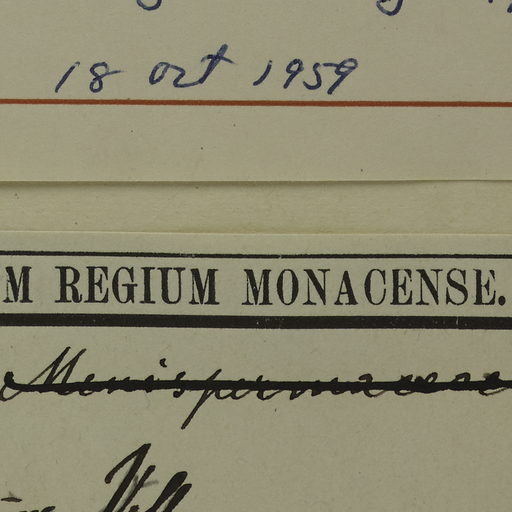 18 Oct 1959
M REGIUM MONACENSE.
Menispermaceae